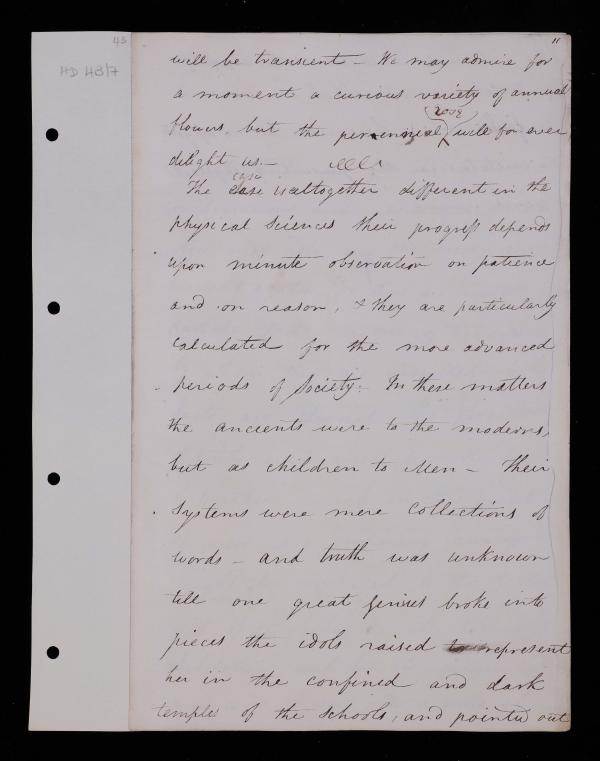 43
HD 43/7
11
will be transient – We may admire for
a moment a curious variety of annual
rose
flowers, but the perennial will for ever
delight us. –
case
The case is altogether different in the
physical sciences their progress depends
upon minute observation on patience
and on reason, & they are particularly
calculated for the more advanced
periods of Society. In these matters
the ancients were to the moderns,
but as children to Men – Their
systems were mere collections of
words – and truth was unknown
till one great genius broke into
pieces the idols raised to represent
her in the confined and dark
temple of the schools, and pointed out